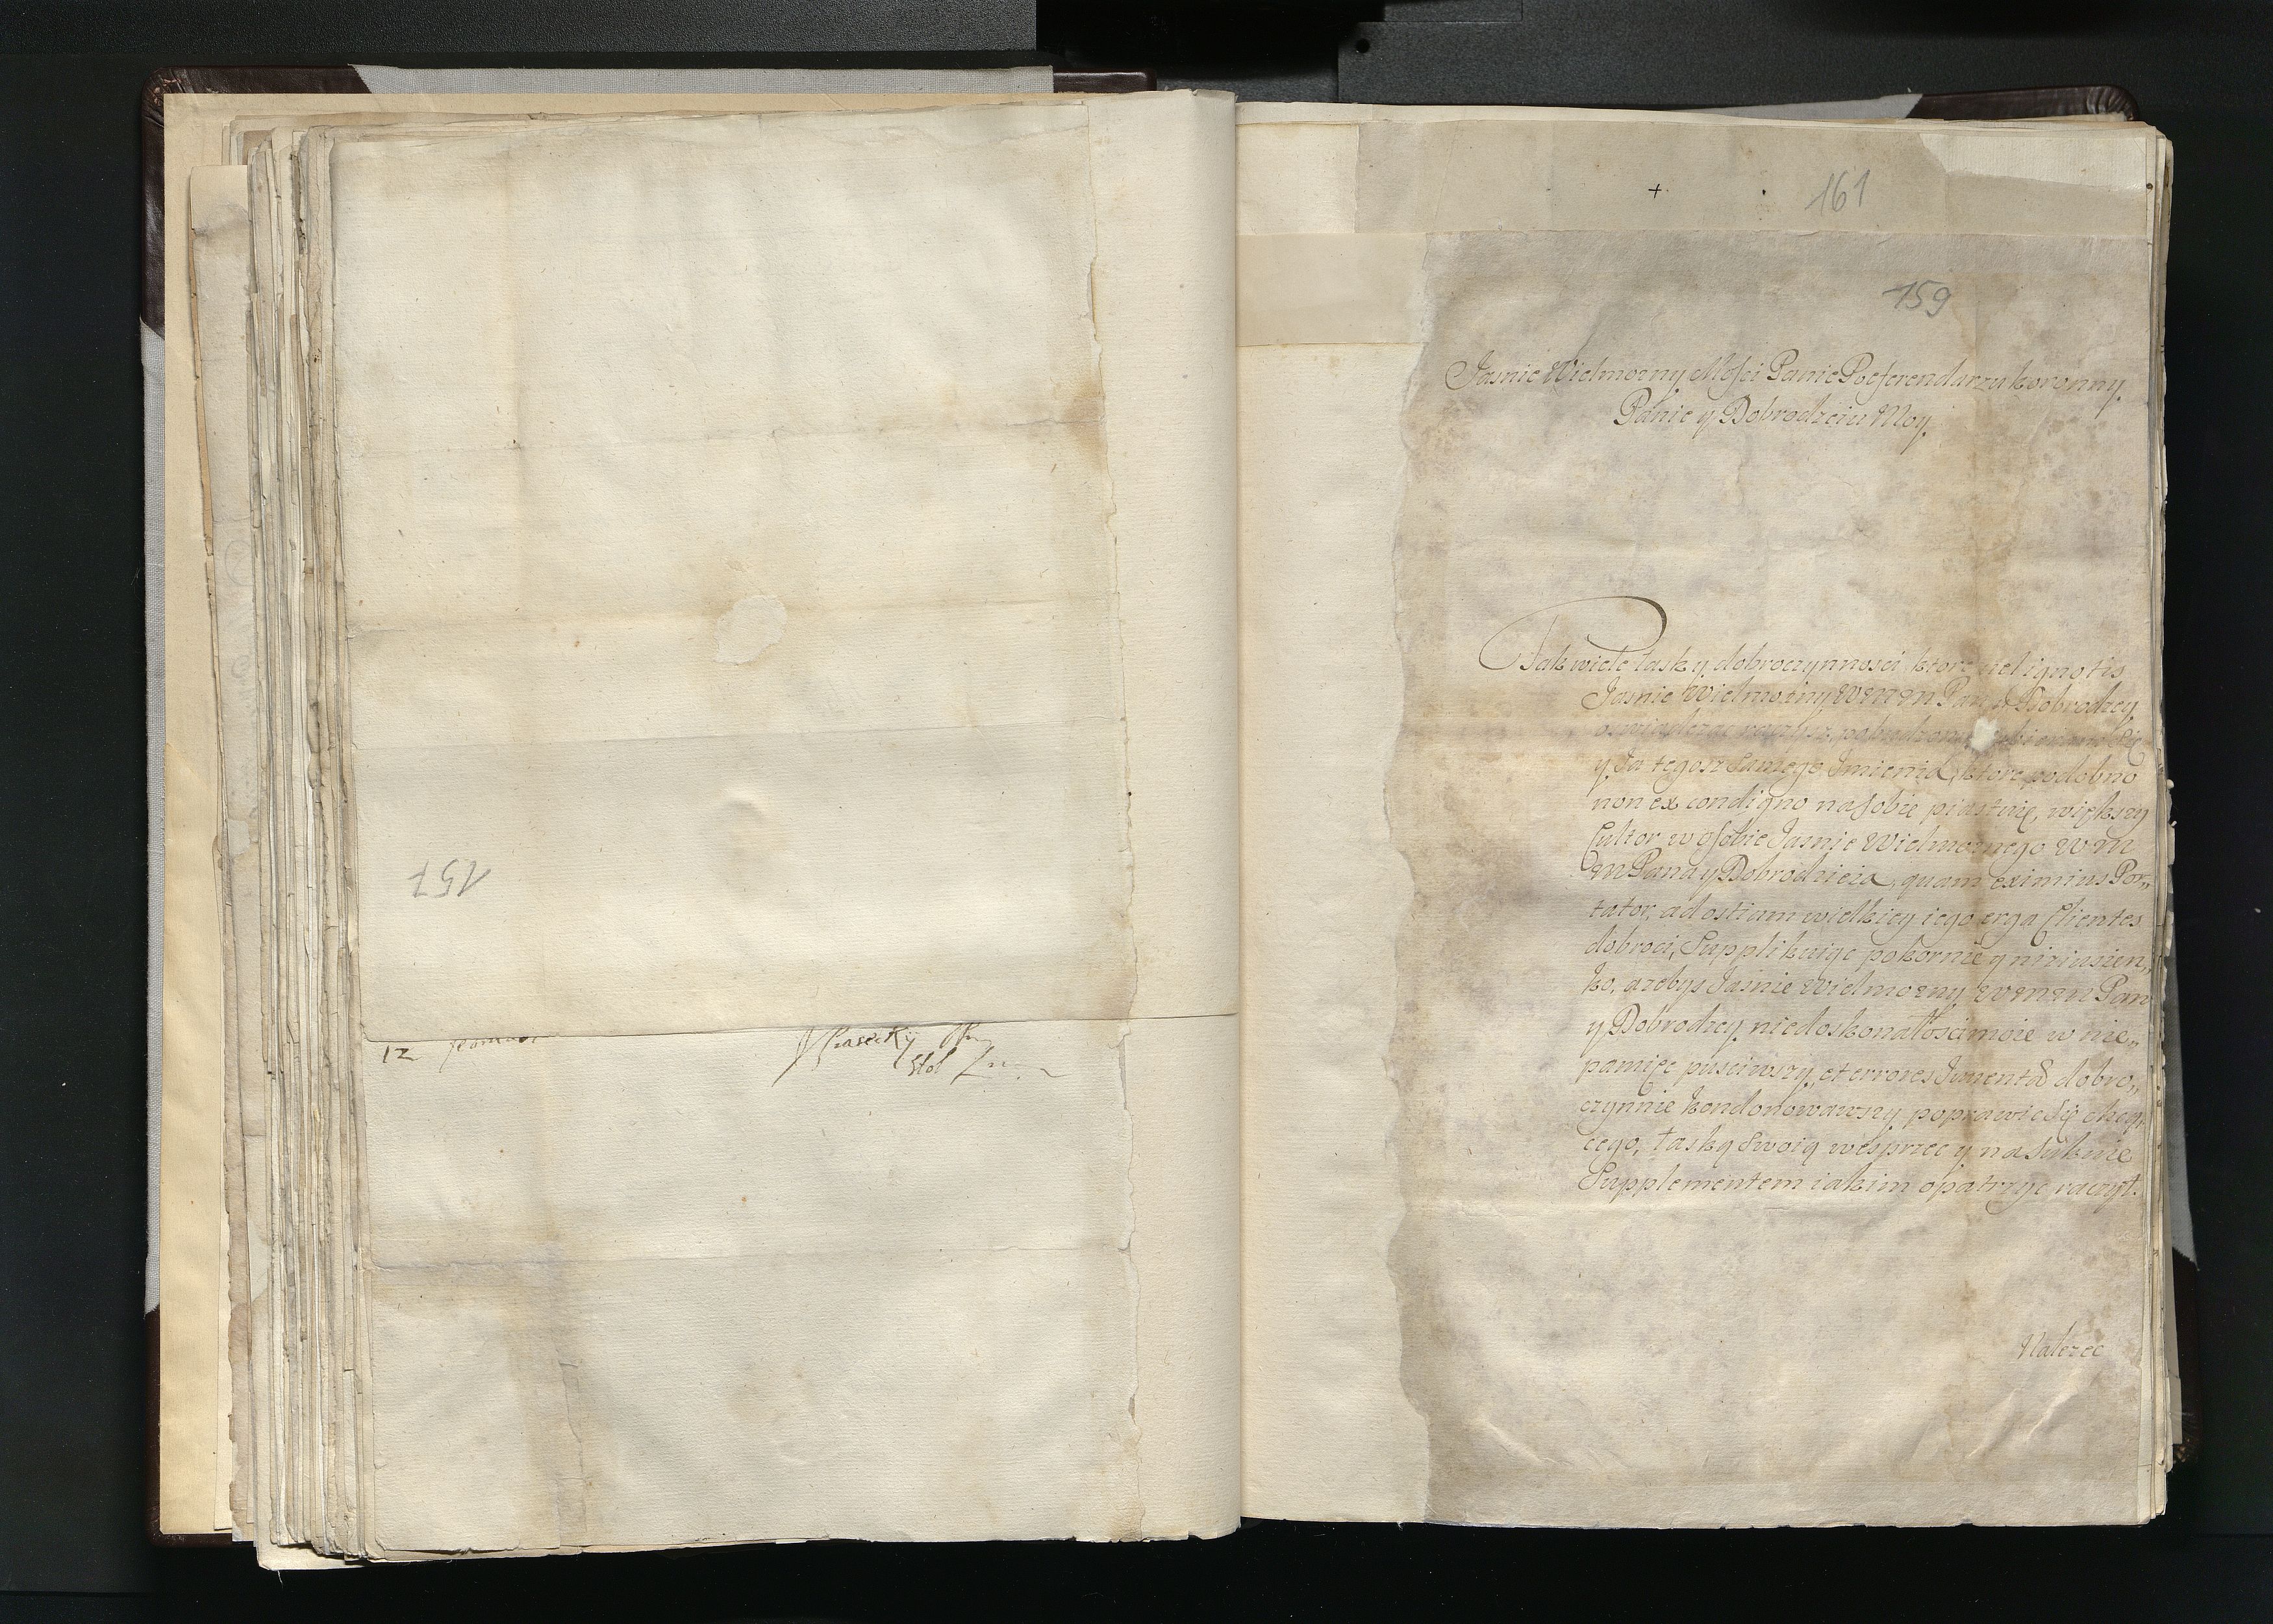 157
12
Piasecky
Stol
161
159
Jasnie Wielmozny Mosci Panie Poeferendarzu koronny.
Panie y Dobrodzeiu Moy.
Tak wiele lasky dobroczynnosci, ktore vel ignotis
Jasnie Wielmozny WMM Pan y Dobrodzey
oswiadczac raczysz, pobudzony
y Ja tegosz Samego Jmienia, ktore podobno
non ex condigno na sobie piastuię, większy
Cultor w osobie Jasnie Wielmoznego WM
M Pana y Dobrodzieia, quam eximius Por„
tator, ad ostium wielkiey iego erga Clientes
dobroci, Supplikuiąc pokornie y niziusien„
ko, azebys Jasnie Wielmozny WMM Pan
y Dobrodzey, niedoskonałosci moie w nie„
pamięc pusciwszy, et errores Juventæ dobro„
czynnie kondonowawszy, poprawic się chcą„
cego, łaską Swoią wesprzec y na Suknie
Supplementem iakim opatrzyc raczył.
Nalezec